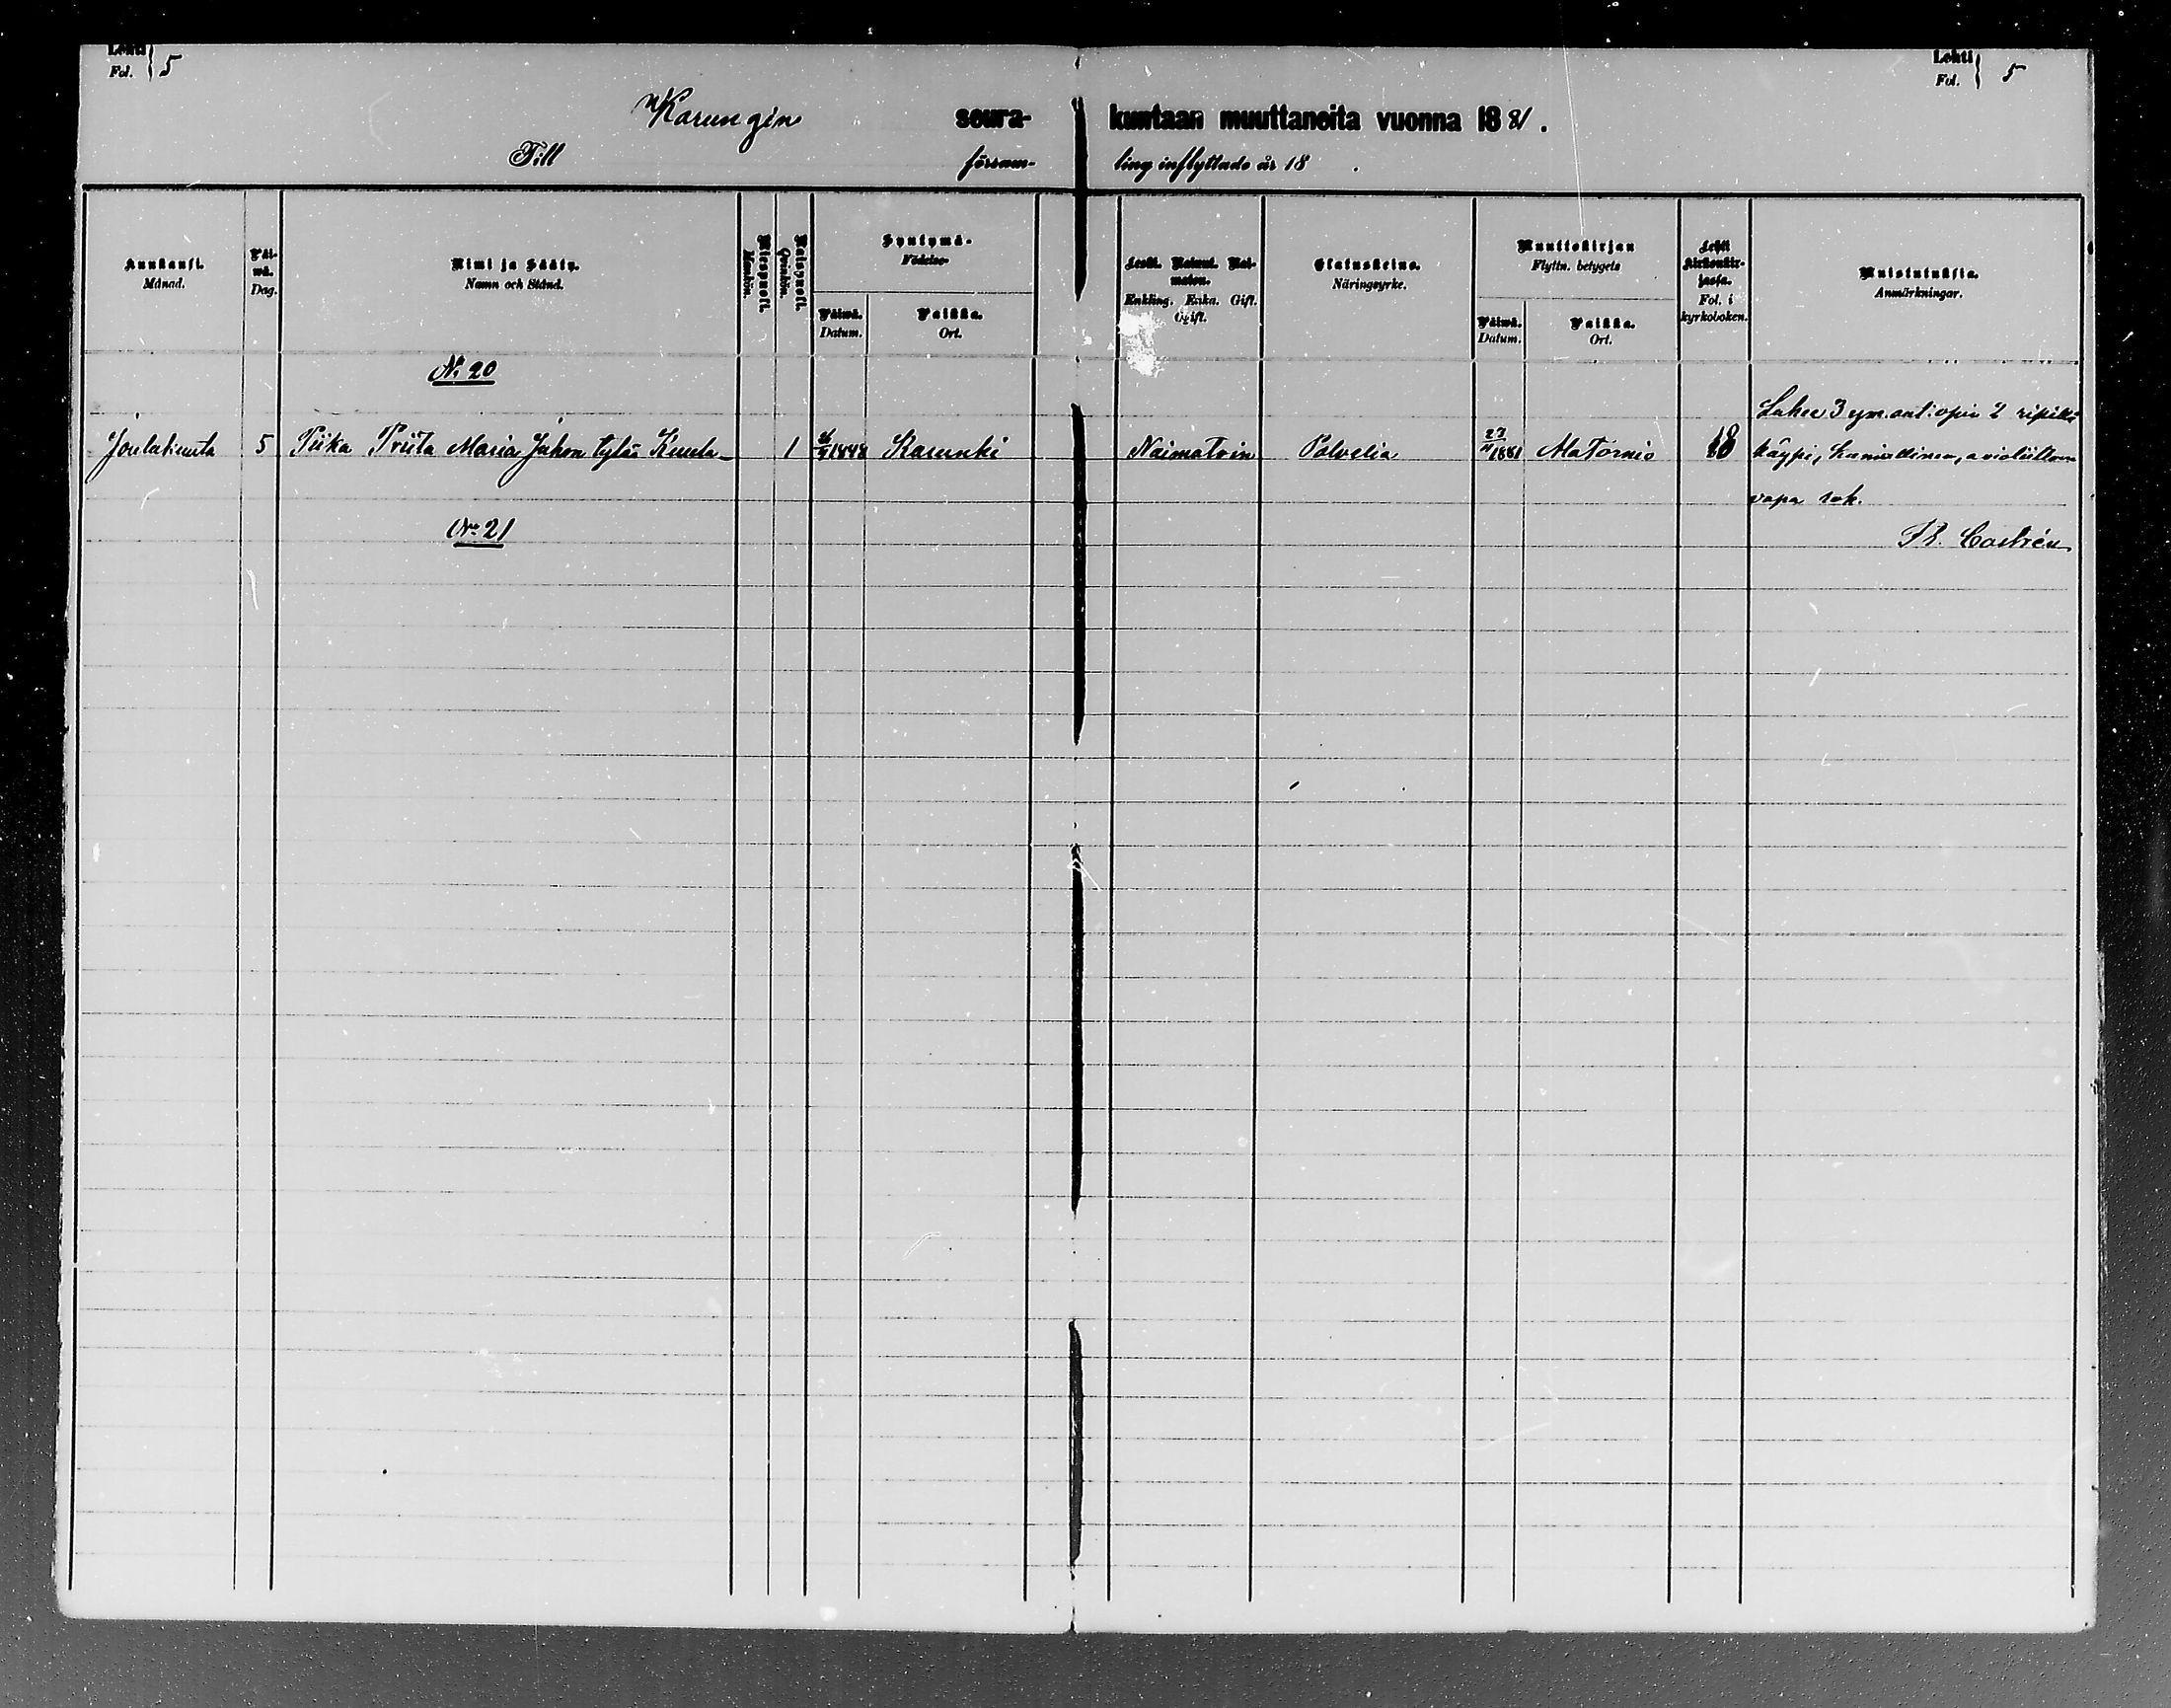 Lehti 5 Lehti 5
Fol. Fol.
Karungin seura- kuntaan muuttaneita vuonna 1881.
Till försam- ling inflyttade år 18 .
Kuukausi. Månad.
Päi-wä. Dag.
Nimi ja Sääty. Namn och Stånd.
Miespuoli. Mankön.
Naispuoli. Qvinkön.
Syntymä- Födelse-
Päiwä. Datum.
Paikka. Ort.
Leski. Nainut. Nai-maton. Enkling. Enka. Gift. Ogift.
Elatuskeino. Näringsyrke.
Muuttokirjan Flyttn. betygets
Päiwä. Datum.
Paikka. Ort.
Lehti kirkonkir-jassa. Fol. i kyrkoboken.
Muistutuksia. Anmärkningar.
No 20
Joulukuuta 5 Piika Priita Maria Juhon tytär 1 1848 Karunki Naimatoin Palvelia 27/11 1881 AlaTornio 18
Lukee 3 ym. aut: opin 2 ripillä
käypi, kunniallinen, avioliittoon
vapa rok.
No 21
Castrén